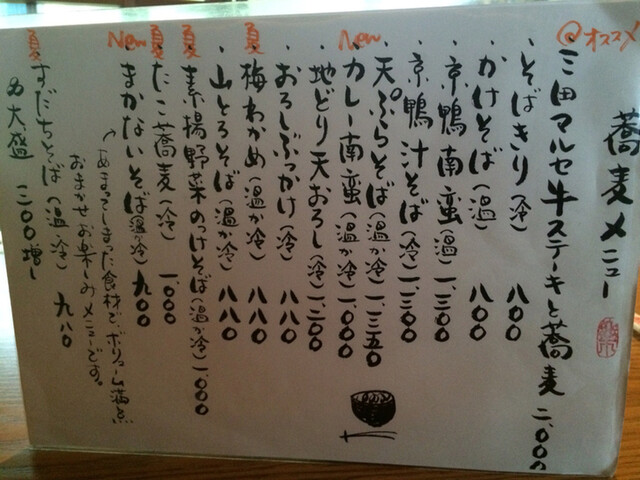 蕎麦メニュー
@オススメ
三田マルセ牛ステーキと蕎麦 二、〇〇〇
・そばきり(冷) 八〇〇
・かけそば(温) 八〇〇
・京鴨南蛮(温) 一、三〇〇
・京鴨汁そば(冷) 一、三〇〇
・天ぷらそば(温か冷) 一、三五〇
New
カレー南蛮(温か冷) 一、〇〇〇
・地どり天おろし(冷) 一、二〇〇
・おろしぶっかけ(冷) 八八〇
夏
・梅わかめ(温か冷) 八八〇
・山とろそば(温か冷) 八八〇
夏
・素揚野菜のっけそば(温か冷) 一、〇〇〇
夏
たこ蕎麦(冷) 一、〇〇〇
New
まかないそば(温か冷) 九〇〇
あまってしまった食材で、ボリューム満点
おまかせお楽しみメニューです。
夏
すだちそば(温 冷) 九八〇
大盛 二〇〇増し